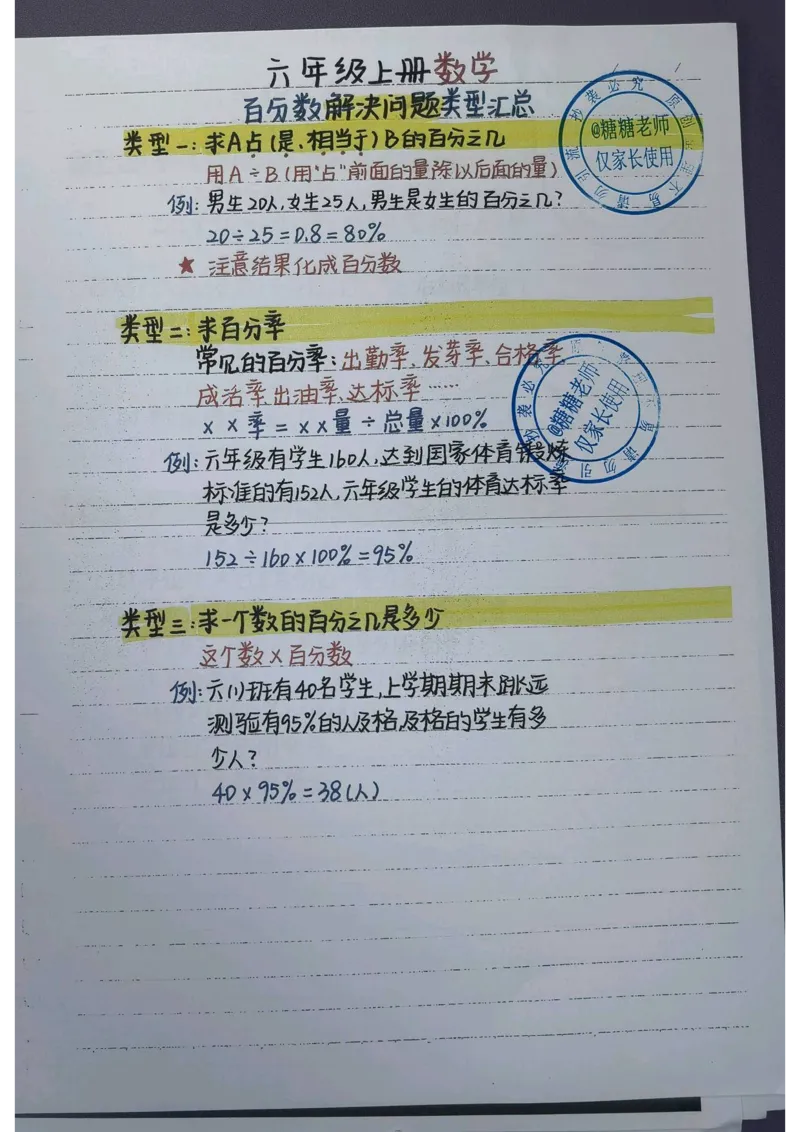 六年级上册数学
百分数解决问题类型汇总
类型一:求A占(是、相当于)B的百分之几
用A÷B(用"占"前面的量除以后面的量)
例:男生20人,女生25人,男生是女生的百分之几?
20÷25=0.8=80%
★ 注意结果化成百分数
类型二:求百分率
常见的百分率:出勤率、发芽率、合格率
成活率、出油率、达标率……
××率=××量÷总量×100%
例:六年级有学生160人,达到国家体育锻炼
标准的有152人,六年级学生的体育达标率
是多少?
152÷160×100%=95%
类型三:求一个数的百分之几是多少
这个数×百分数
例:六(1)班有40名学生,上学期期末跳远
测验有95%的人及格,及格的学生有多
少人?
40×95%=38(人)
@糖糖老师
仅家长使用
@糖糖老师
仅家长使用